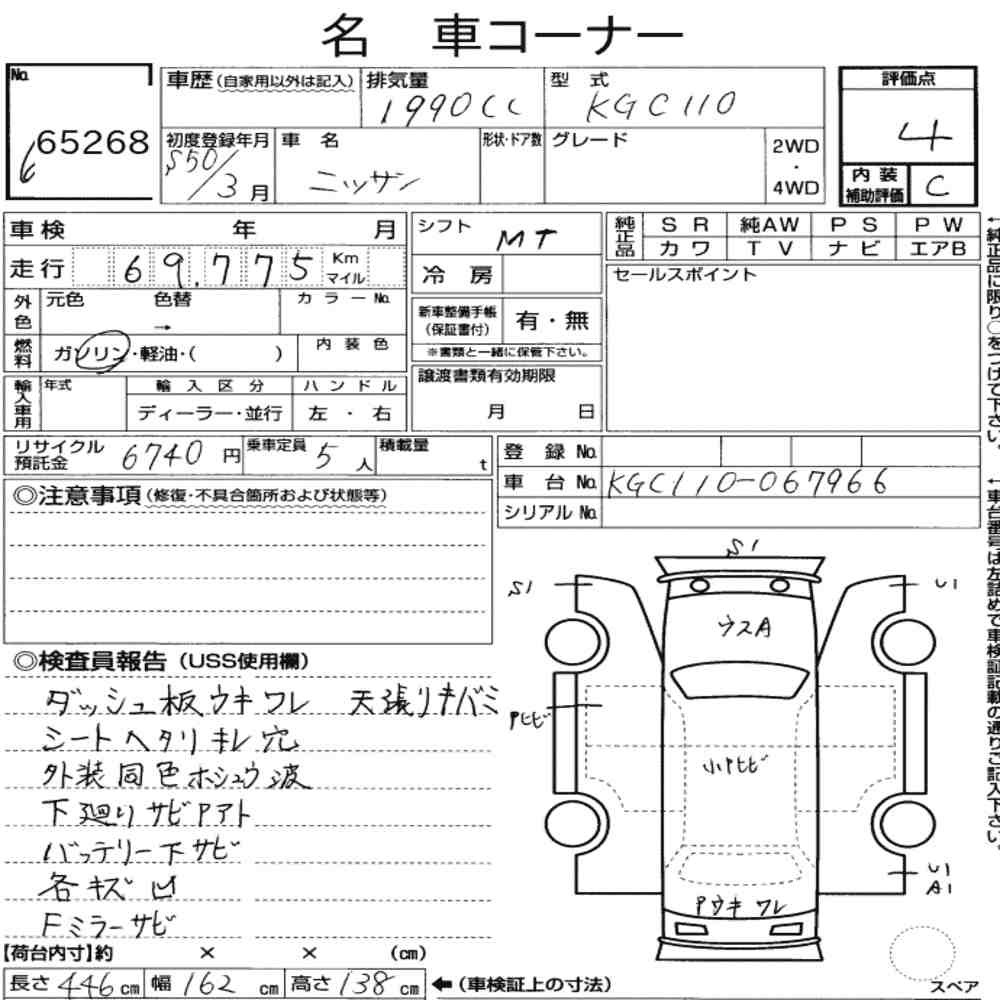 名 車コーナー
No. 65268
6
車歴(自家用以外は記入)
排気量 1990cc
型式 KGC110
評価点 4
内装補助評価 C
初度登録年月 S50/3月
車名 ニッサン
形状・ドア数
グレード
2WD・4WD
車検 年 月
シフト MT
純正品 SR 純AW PS PW
カワ TV ナビ エアB
走行 69,775 Km マイル
冷房
セールスポイント
外色 元色 色替 → カラーNo.
新車整備手帳(保証書付) 有・無
※書類と一緒に保管下さい。
燃料 ガソリン・軽油・( )
内装色
譲渡書類有効期限 月 日
輸入車用 年式 輸入区分 ディーラー・並行 ハンドル 左・右
リサイクル預託金 6740円
乗車定員 5人
積載量 t
登録No.
車台No. KGC110-067966
シリアルNo.
◎注意事項(修復・不具合箇所および状態等)
◎検査員報告(USS使用欄)
ダッシュ板ウキワレ 天張りキバミ
シートヘタリキレ穴
外装同色ホシュウ波
下廻りサビPアト
バッテリー下サビ
各キズ凹
Fミラーサビ
S1
S1
U1
ウスA
Pヒビ
小Pヒビ
U1
A1
Pウキワレ
スペア
【荷台内寸】約 × × (cm)
長さ446cm 幅162cm 高さ138cm ←(車検証上の寸法)
←純正品に限り○をつけて下さい。
←車台番号は左詰めで車検証記載の通りご記入下さい。